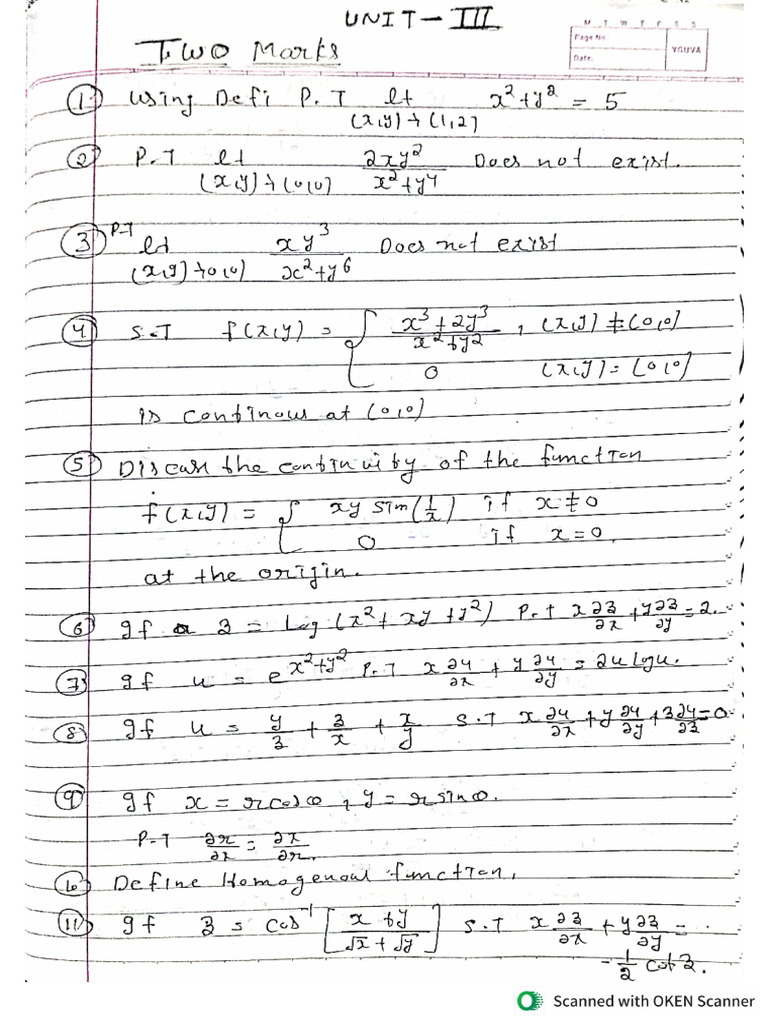 UNIT-III
M T W T F S S
Page No.
YOUVA
Date:
Two Marks
① Using Defi P.T lt x²+y² = 5
(x,y)→(1,2)
② P.T lt 2xy² Does not exist.
(x,y)→(0,0) x²+y⁴
③ P.T lt xy³ Does not exist
(x,y)→(0,0) x²+y⁶
④ S.T f(x,y) = { x³+2y³ / x²+y² , (x,y) ≠ (0,0)
0 (x,y) = (0,0)
is continous at (0,0)
⑤ Discuss the continuity of the function
f(x,y) = { xy sin(1/x) if x≠0
0 if x=0,
at the origin.
⑥ If z = log (x²+xy+y²) P.T x ∂z/∂x + y ∂z/∂y = 2.
⑦ If u = e^x²+y² P.T x ∂u/∂x + y ∂u/∂y = 2u logu.
⑧ If u = y/z + z/x + x/y S.T x ∂u/∂x + y ∂u/∂y + z ∂u/∂z = 0
⑨ If x = r cosθ, y = r sinθ.
P.T ∂r/∂x = ∂x/∂r.
⑩ Define Homogenous function.
⑪ If z = cos⁻¹ [x+y / √x+√y] S.T x ∂z/∂x + y ∂z/∂y =
-1/2 cot z.
Scanned with OKEN Scanner